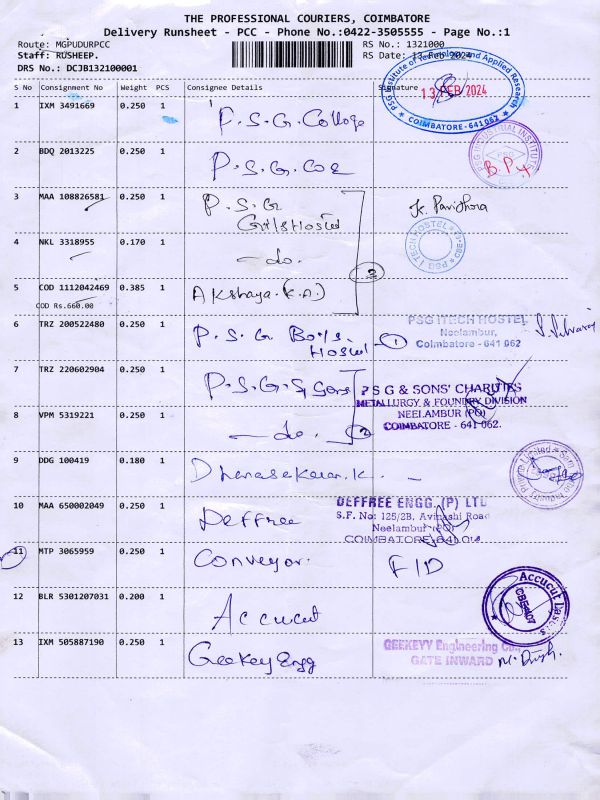 THE PROFESSIONAL COURIERS, COIMBATORE
Delivery Runsheet - PCC - Phone No.:0422-3505555 - Page No.:1
Route: MGPUDURPCC RS No.: 1321000
Staff: RUSHEEP. RS Date: 13 Feb 2024
DRS No.: DCJB132100001
S No Consignment No Weight PCS Consignee Details Signature
PSG Institute of Technology and Applied Research
13 FEB 2024
COIMBATORE - 641 062
1 IXM 3491669 0.250 1 P.S.G. College
2 BDQ 2013225 0.250 1 P.S.G. Coe
PSG INDUSTRIAL INSTITUTE
PSG
3 MAA 108826581 0.250 1 P.S.G
Girls Hostel
4 NKL 3318955 0.170 1 - do. 2
PSG ITECH HOSTEL
5 COD 1112042469 0.385 1 Akshaya. (K.A.)
COD Rs.660.00
6 TRZ 200522480 0.250 1 P.S.G Boys. 1
Hostel
PSG ITECH HOSTEL
Neelambur,
Coimbatore - 641 062
7 TRZ 220602904 0.250 1 P.S.G. & Sons
PSG & SONS' CHARITIES
METALLURGY & FOUNDRY DIVISION
NEELAMBUR (PO)
COIMBATORE - 641 062.
8 VPM 5319221 0.250 1 - do. 2
9 DDG 100419 0.180 1 Dhanasekaran. K. -
10 MAA 650002049 0.250 1 Deffree
DEFFREE ENGG. (P) LTD
S.F. No: 125/2B, Avinashi Road
Neelambur (PO)
COIMBATORE 641 062
11 MTP 3065959 0.250 1 Conveyor. F/D
12 BLR 5301207031 0.200 1 Accucut
Accucut
13 IXM 505887190 0.250 1 Geekey Engg
GEEKEYY Engineering
GATE INWARD